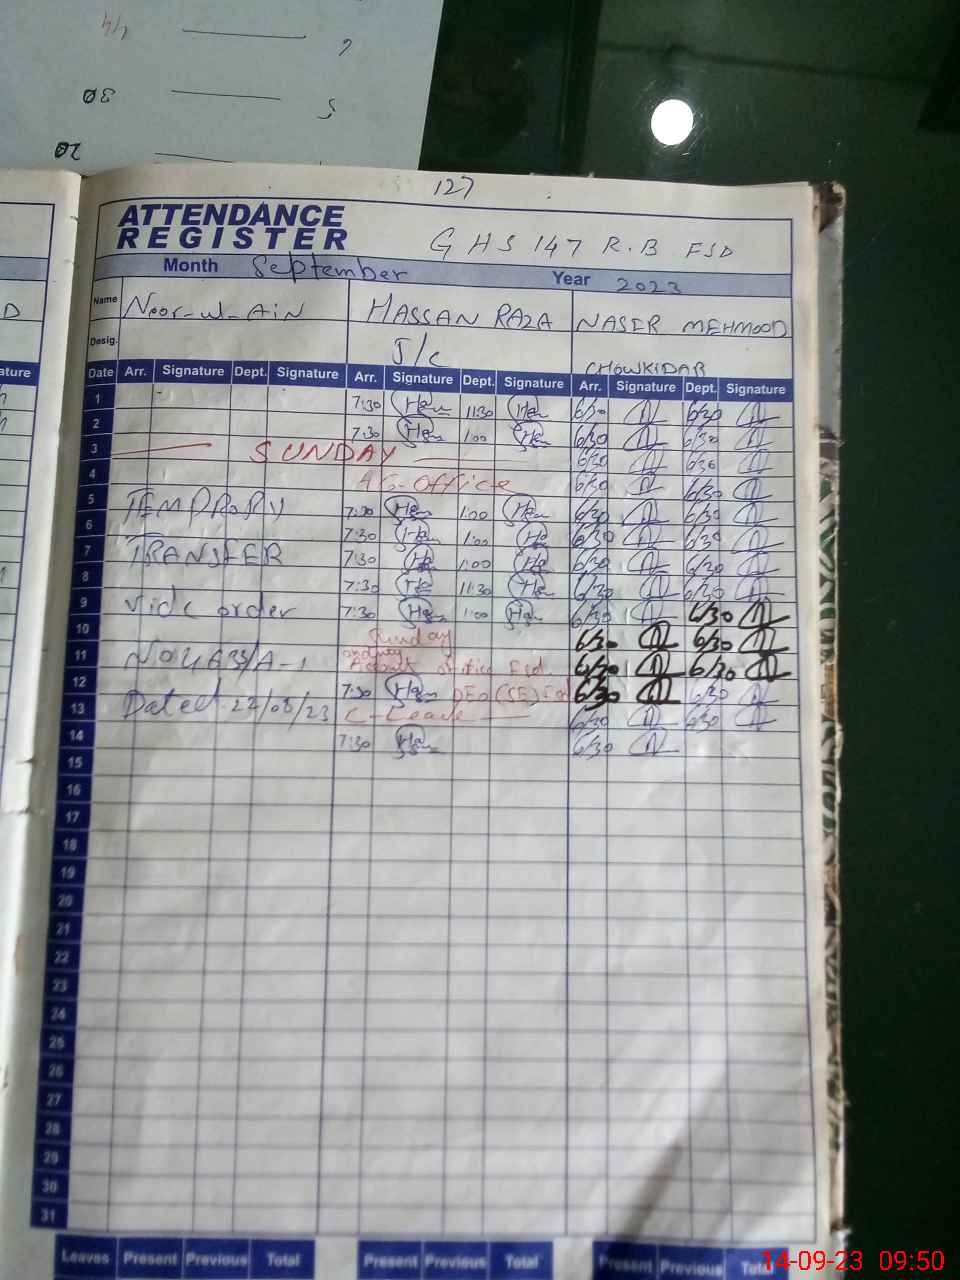 44
6
30
5
20
127
ATTENDANCE
REGISTER
GHS 147 R.B FSD
Month September Year 2023
Name Noor-ul-Ain HASSAN RAZA NASER MEHMOOD
Desig. J/C CHOWKIDAR
Date Arr. Signature Dept. Signature Arr. Signature Dept. Signature Arr. Signature Dept. Signature
1 7:30 11:30 6/30 6/30
2 7:30 1:00 6/30 6/30
3 SUNDAY 6/30 6/30
4 A.G. Office 6/30 6/30
5 TEMPRORY 7:30 1:00 6/30 6/30
6 7:30 1:00 6/30 6/30
7 TRANSFER 7:30 1:00 6/30 6/30
8 7:30 11:30 6/30 6/30
9 vide order 7:30 1:00 6/30 6/30
10 Sunday 6/30 6/30
11 NO 4633/A-1 office Fsd 6/30 6/30
12 7:30 DEO (SE) Fsd 6/30 6/30
13 Dated 22/08/23 C-Leave 6/30 6/30
14 7:30 6/30
15
16
17
18
19
20
21
22
23
24
25
26
27
28
29
30
31
Leaves Present Previous Total Present Previous Total Present Previous Total
14-09-23 09:50